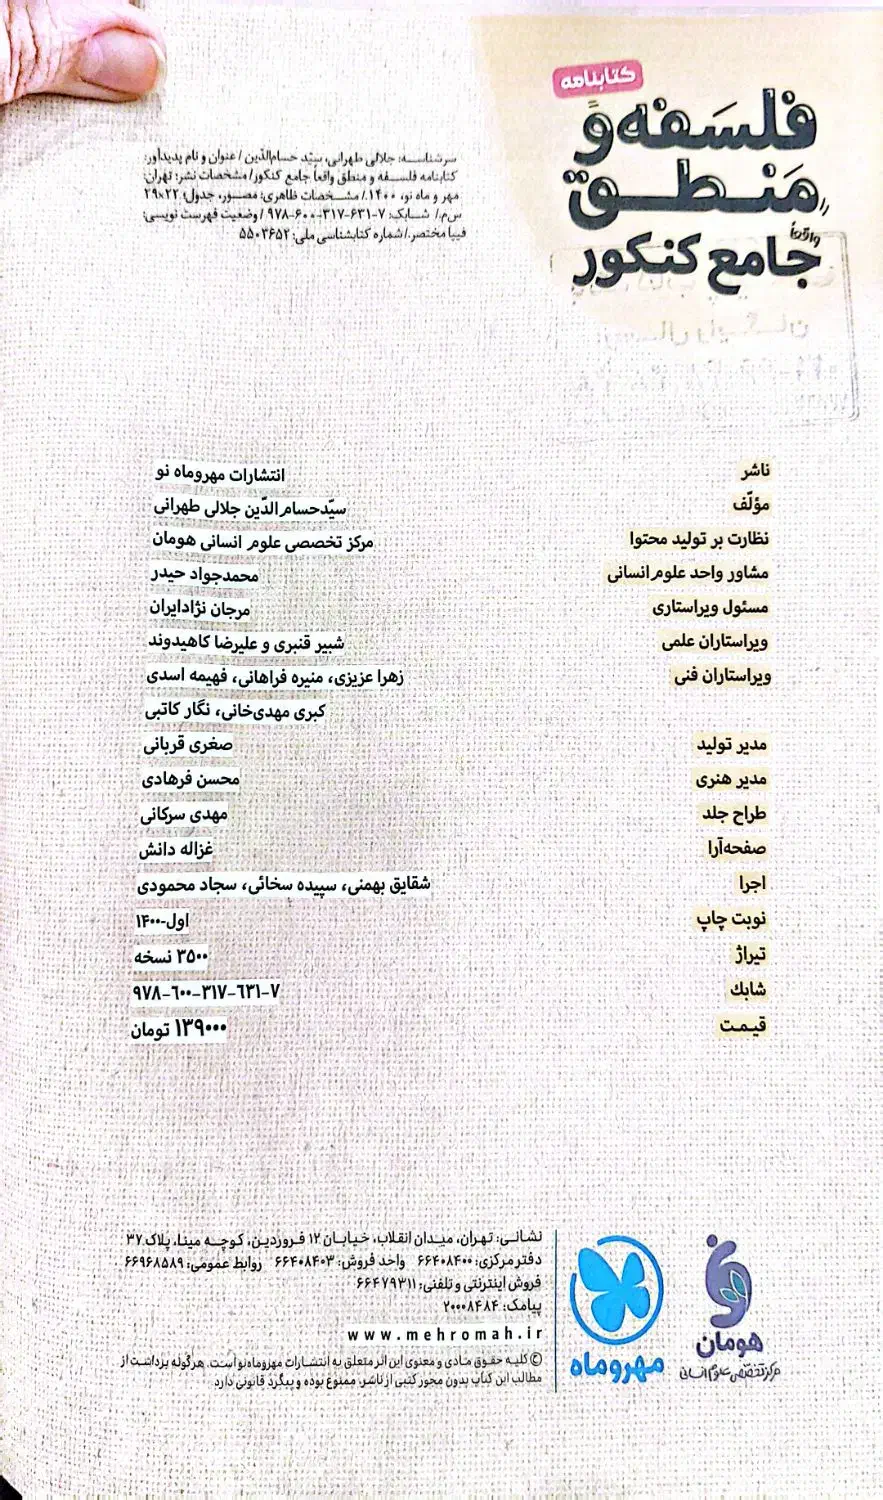 کتابنامه
فلسفه و
منطق
واقعاً
جامع کنکور
سرشناسه: جلالی طهرانی، سیّد حسام‌الدّین / عنوان و نام پدیدآور:
کتابنامه فلسفه و منطق واقعاً جامع کنکور/ مشخصات نشر: تهران:
مهر و ماه نو، ۱۴۰۰./ مشخصات ظاهری: مصور، جدول؛ ۲۲×۲۹
س‌م./ شابک: ۷-۶۳۱-۳۱۷-۶۰۰-۹۷۸ / وضعیت فهرست نویسی:
فیپا مختصر./ شماره کتابشناسی ملی: ۵۵۰۳۶۵۲
ناشر انتشارات مهروماه نو
مؤلّف سیّدحسام‌الدّین جلالی طهرانی
نظارت بر تولید محتوا مرکز تخصصی علوم انسانی هومان
مشاور واحد علوم‌انسانی محمدجواد حیدر
مسئول ویراستاری مرجان نژادایران
ویراستاران علمی شبیر قنبری و علیرضا کاهیدوند
ویراستاران فنی زهرا عزیزی، منیره فراهانی، فهیمه اسدی
کبری مهدی‌خانی، نگار کاتبی
مدیر تولید صغری قربانی
مدیر هنری محسن فرهادی
طراح جلد مهدی سرکانی
صفحه‌آرا غزاله دانش
اجرا شقایق بهمنی، سپیده سخائی، سجاد محمودی
نوبت چاپ اول-۱۴۰۰
تیراژ ۳۵۰۰ نسخه
شابك ۹۷۸-۶۰۰-۳۱۷-۶۳۱-۷
قیمت ۱۳۹۰۰۰ تومان
نشانی: تهران، میدان انقلاب، خیابان ۱۲ فروردین، کوچه مینا، پلاک ۳۷
دفتر مرکزی: ۶۶۴۰۸۴۰۰ واحد فروش: ۶۶۴۰۸۴۰۳ روابط عمومی: ۶۶۹۶۸۵۸۹
فروش اینترنتی و تلفنی: ۶۶۴۷۹۳۱۱
پیامک: ۲۰۰۰۸۴۸۴
www.mehromah.ir
© کلیه حقوق مادی و معنوی این اثر متعلق به انتشارات مهروماه‌نو است. هرگونه برداشت از
مطالب این کتاب بدون مجوز کتبی از ناشر، ممنوع بوده و پیگرد قانونی دارد.
مهروماه
هومان
مرکز تخصصی علوم انسانی